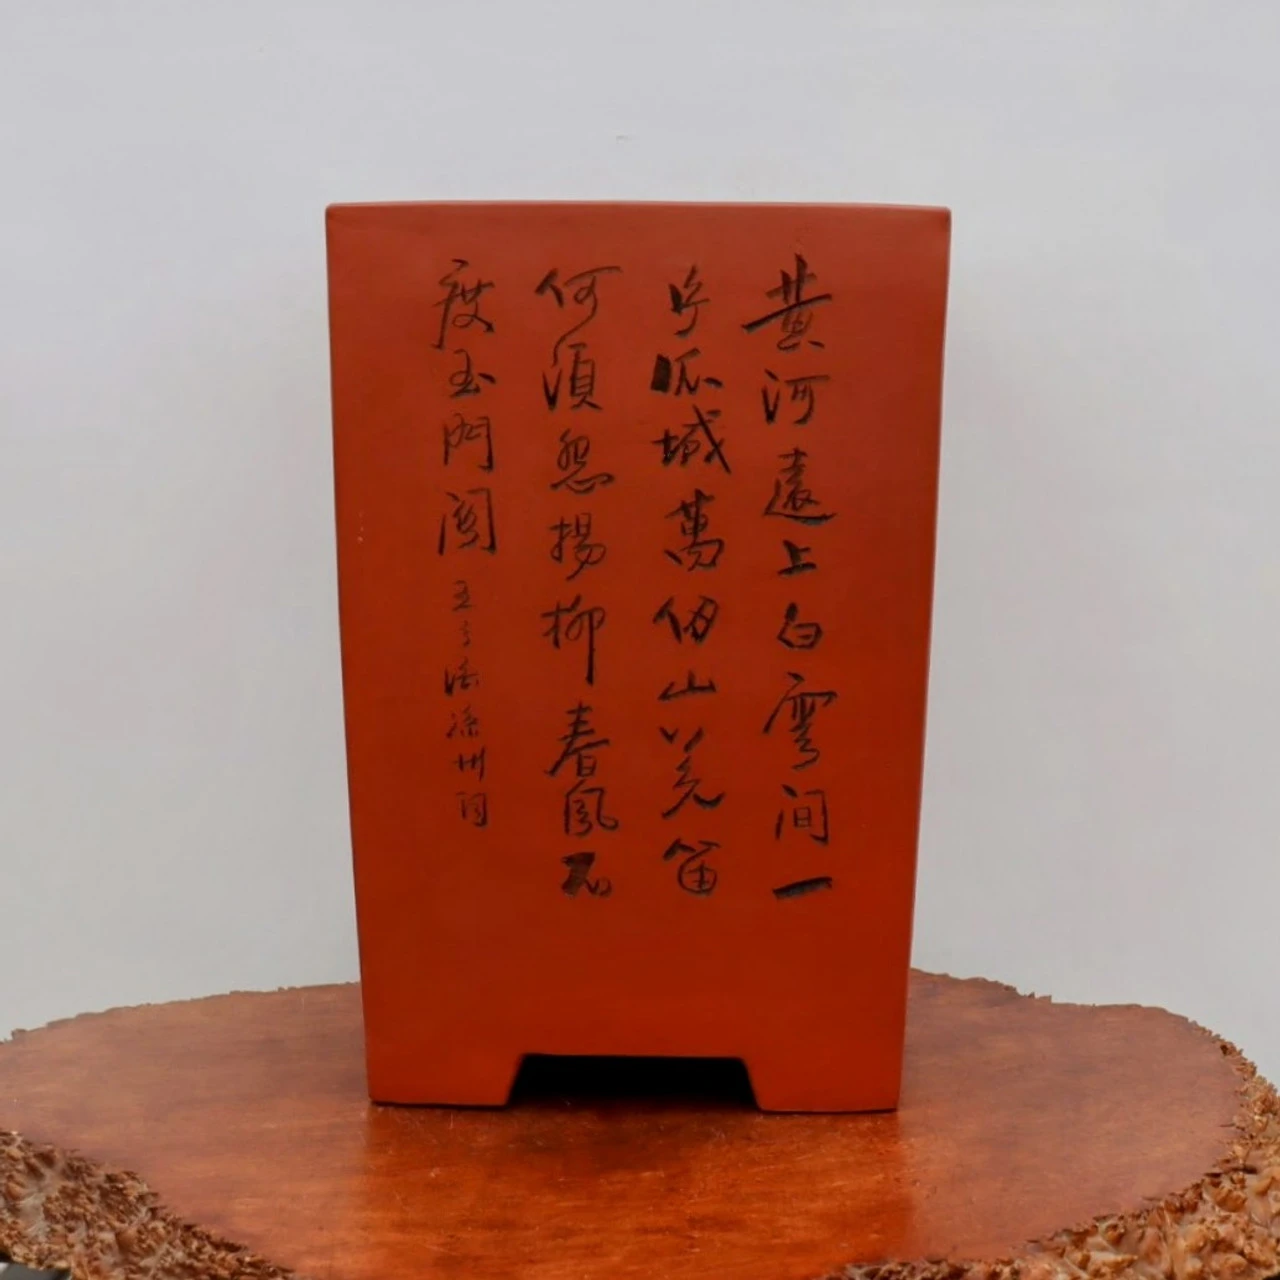 黄河遠上白雲间一
片孤城萬仞山羌笛
何須怨楊柳春風不
度玉門関